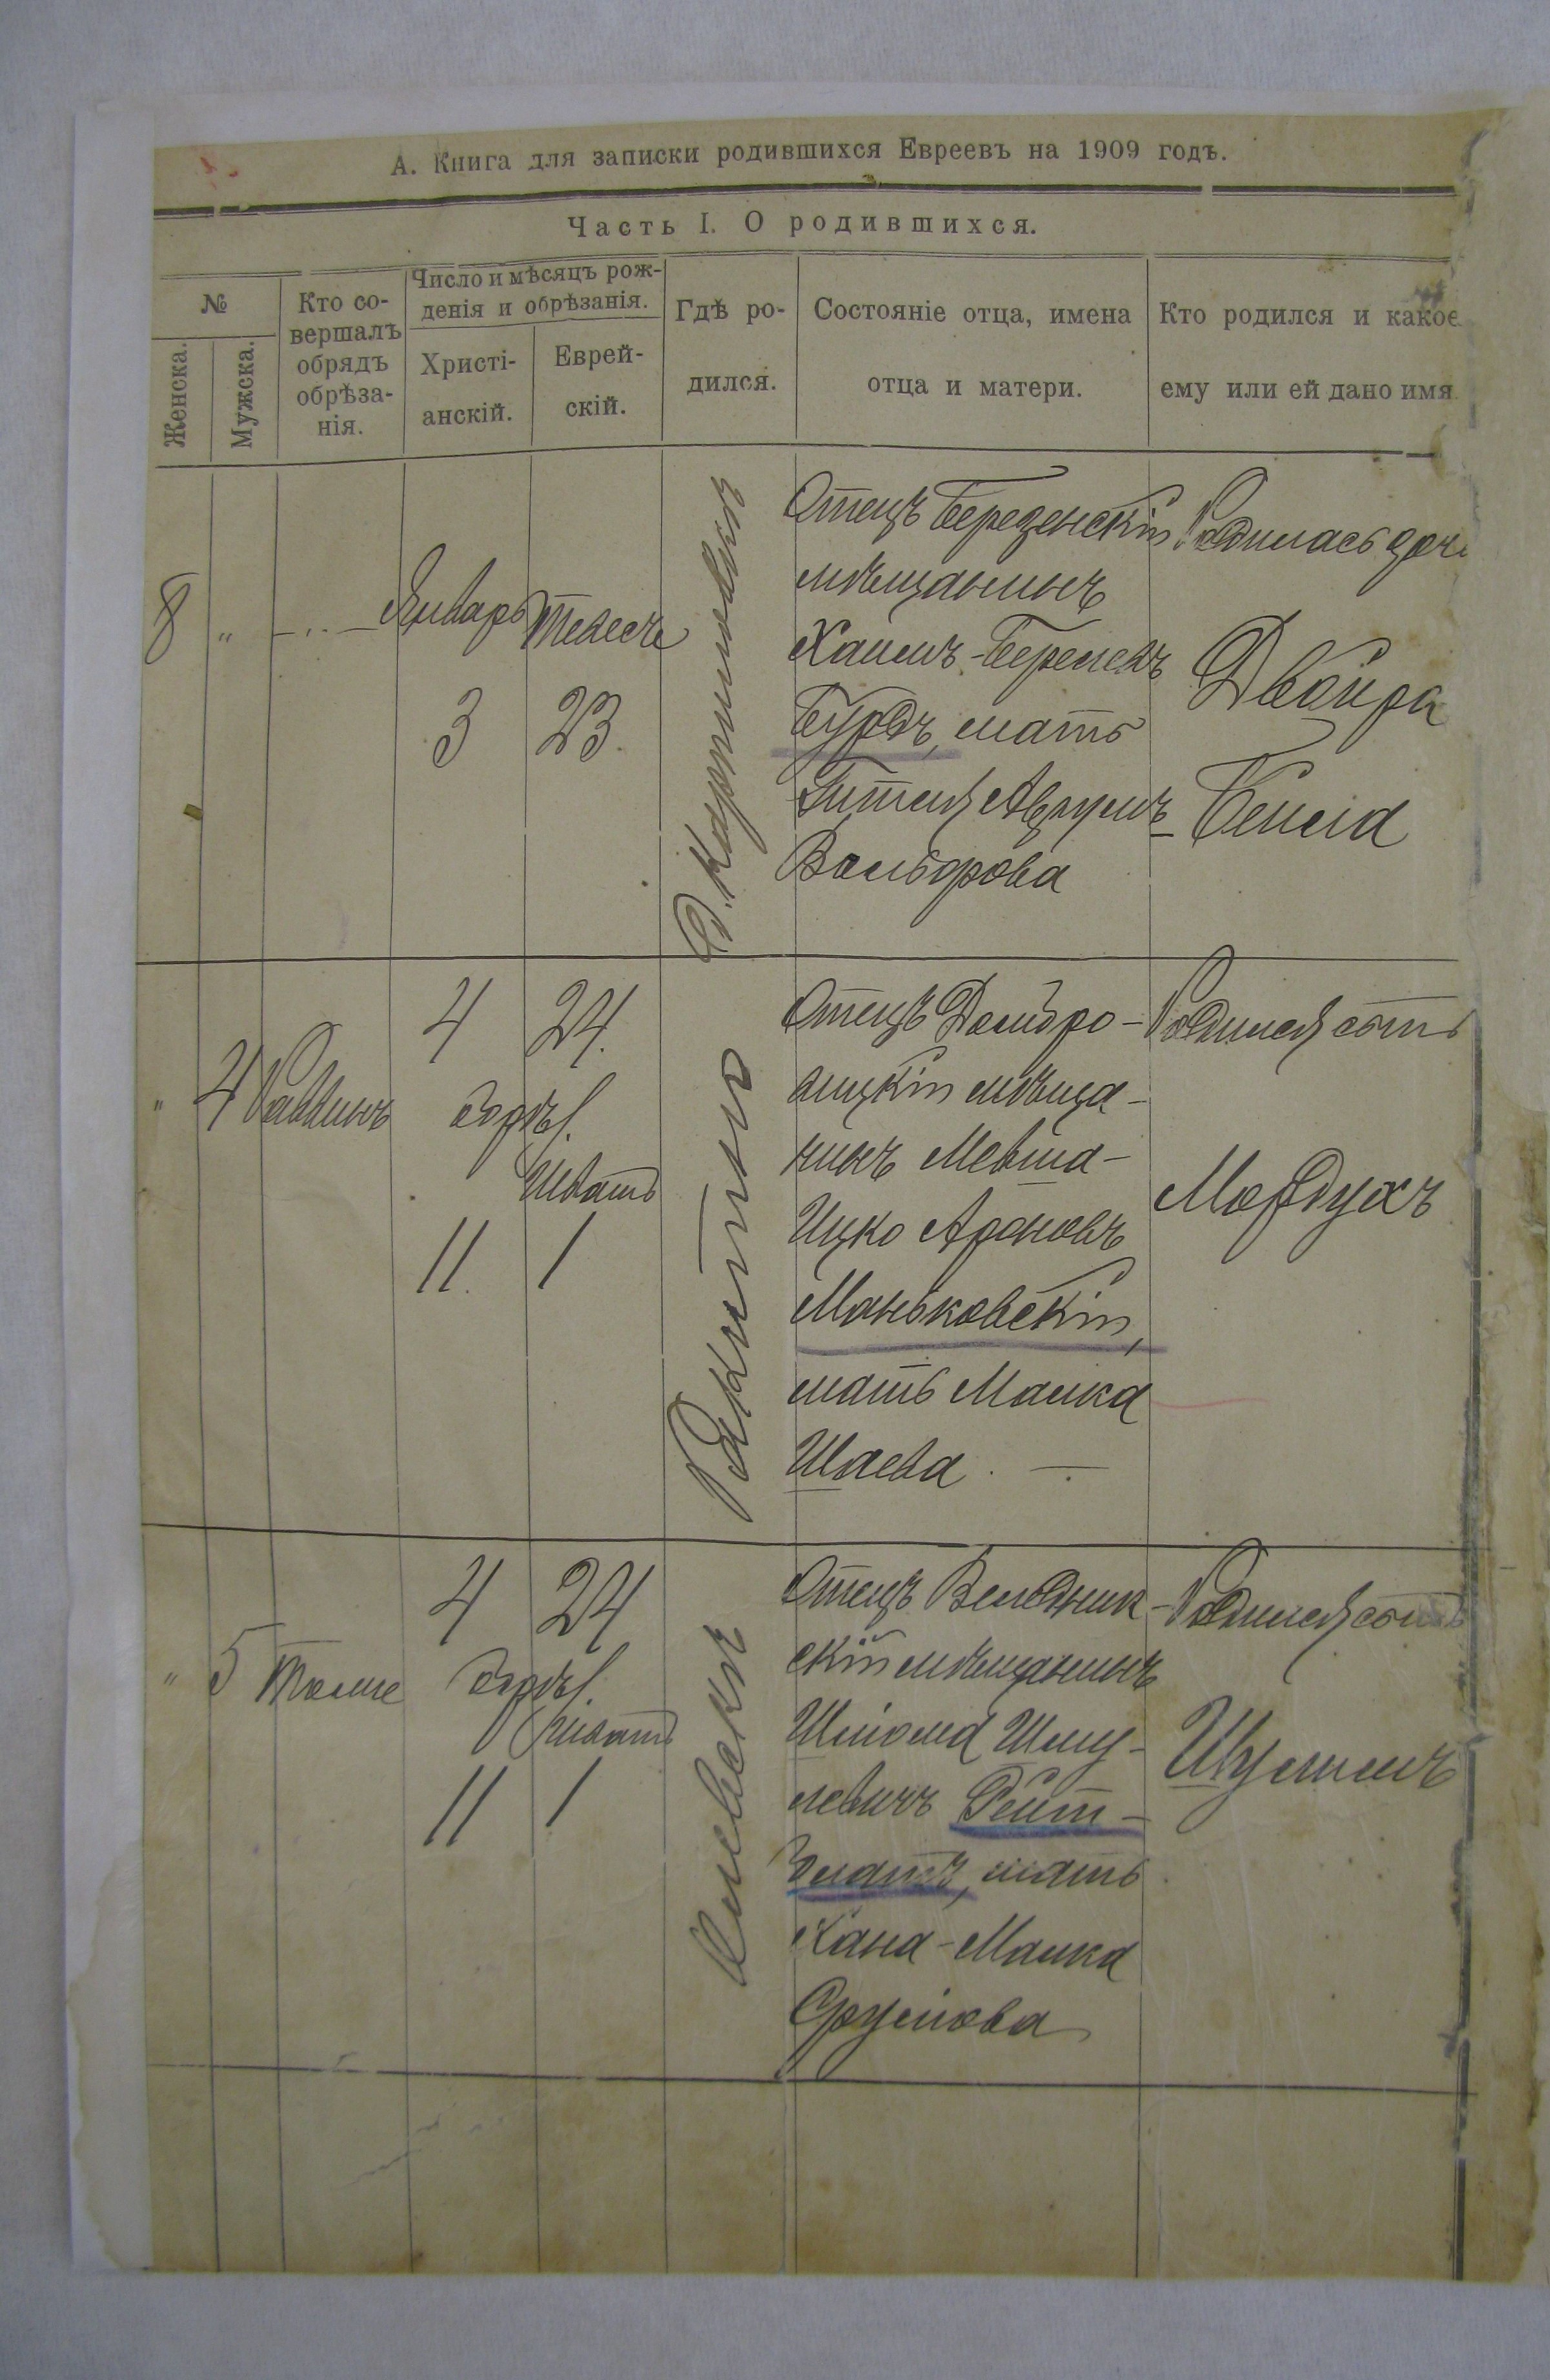 А. Книга для записки родившихся Евреевъ на 1909 годъ.
Часть I. О родившихся.
№
Женска.
Мужска.
Кто со-
вершалъ
обрядъ
обрѣза-
нія.
Число и мѣсяцъ рож-
денія и обрѣзанія.
Христі-
анскій.
Еврей-
скій.
Гдѣ ро-
дился.
Состояніе отца, имена
отца и матери.
Кто родился и какое
ему или ей дано имя.
8 " — .. —
Январь
3
Тевесъ
23.
Отецъ Березенскій
мѣщанинъ
Хаимъ-Беремъ
Бурдъ, мать
Гителя Аврумъ-
Вольфова
Родилась дочь
Двойра
Бейла
" 4 Раввинъ
4
24.
обрѣз.
Шватъ
11.
1
Ракитно
Отецъ Домбро-
вицкій мѣща-
нинъ Мевша-
Ицко Ароновъ
Маньковскій,
мать Малка
Шаева. —
Родился сынъ
Мордухъ
" 5 Тоже
4
24
обрѣз.
Шватъ
11
1
Отецъ Веледник-
скій мѣщанинъ
Шлома Шму-
левичъ Рейт-
блатъ, мать
Хана-Малка
Срулова
Родился сынъ
Шулимъ